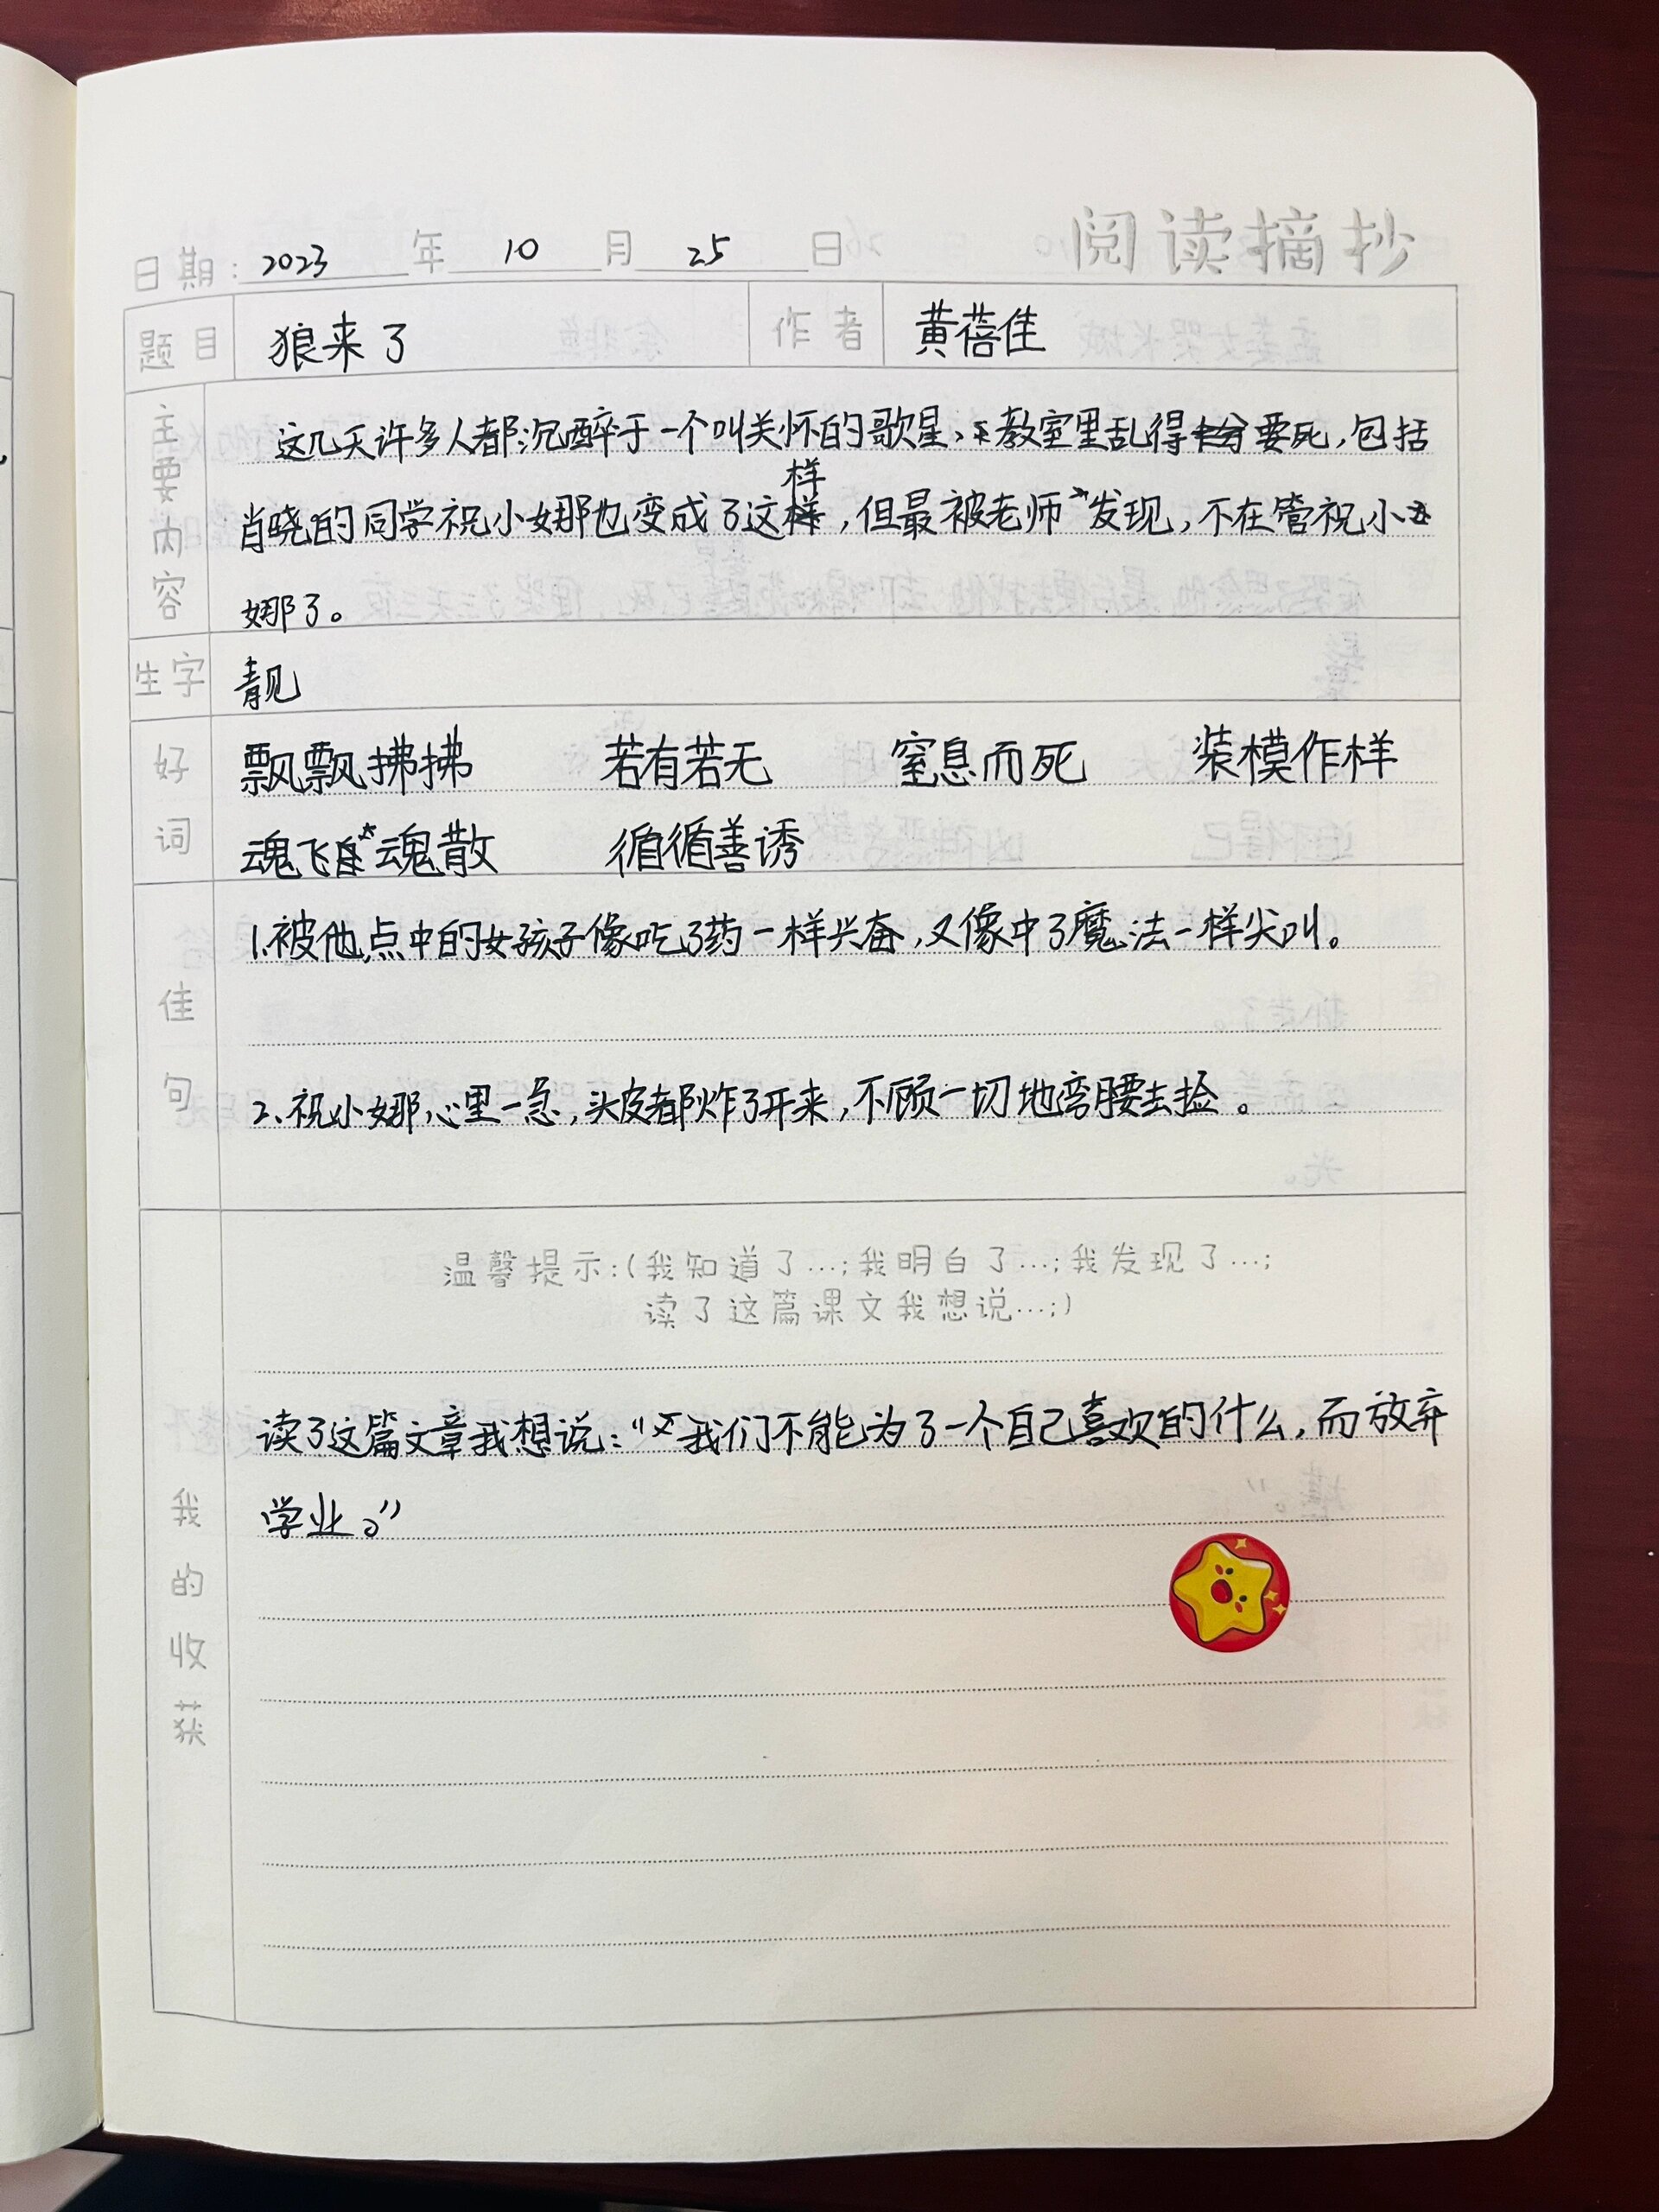 阅读摘抄
日期:2023年10月25日
题目 狼来了 作者 黄蓓佳
主要内容
这几天许多人都沉醉于一个叫关怀的歌星,教室里乱得要死,包括
肖晓的同学祝小娜也变成了这样,但最被老师发现,不在管祝小
娜了。
生字 靓
好词
飘飘拂拂 若有若无 窒息而死 装模作样
魂飞魂散 循循善诱
佳句
1.被他点中的女孩子像吃了药一样兴奋,又像中了魔法一样尖叫。
2.祝小娜心里一急,头皮都炸了开来,不顾一切地弯腰去捡。
我的收获
温馨提示:(我知道了...;我明白了...;我发现了...;
读了这篇课文我想说...;)
读了这篇文章我想说:“我们不能为了一个自己喜欢的什么,而放弃
学业。”